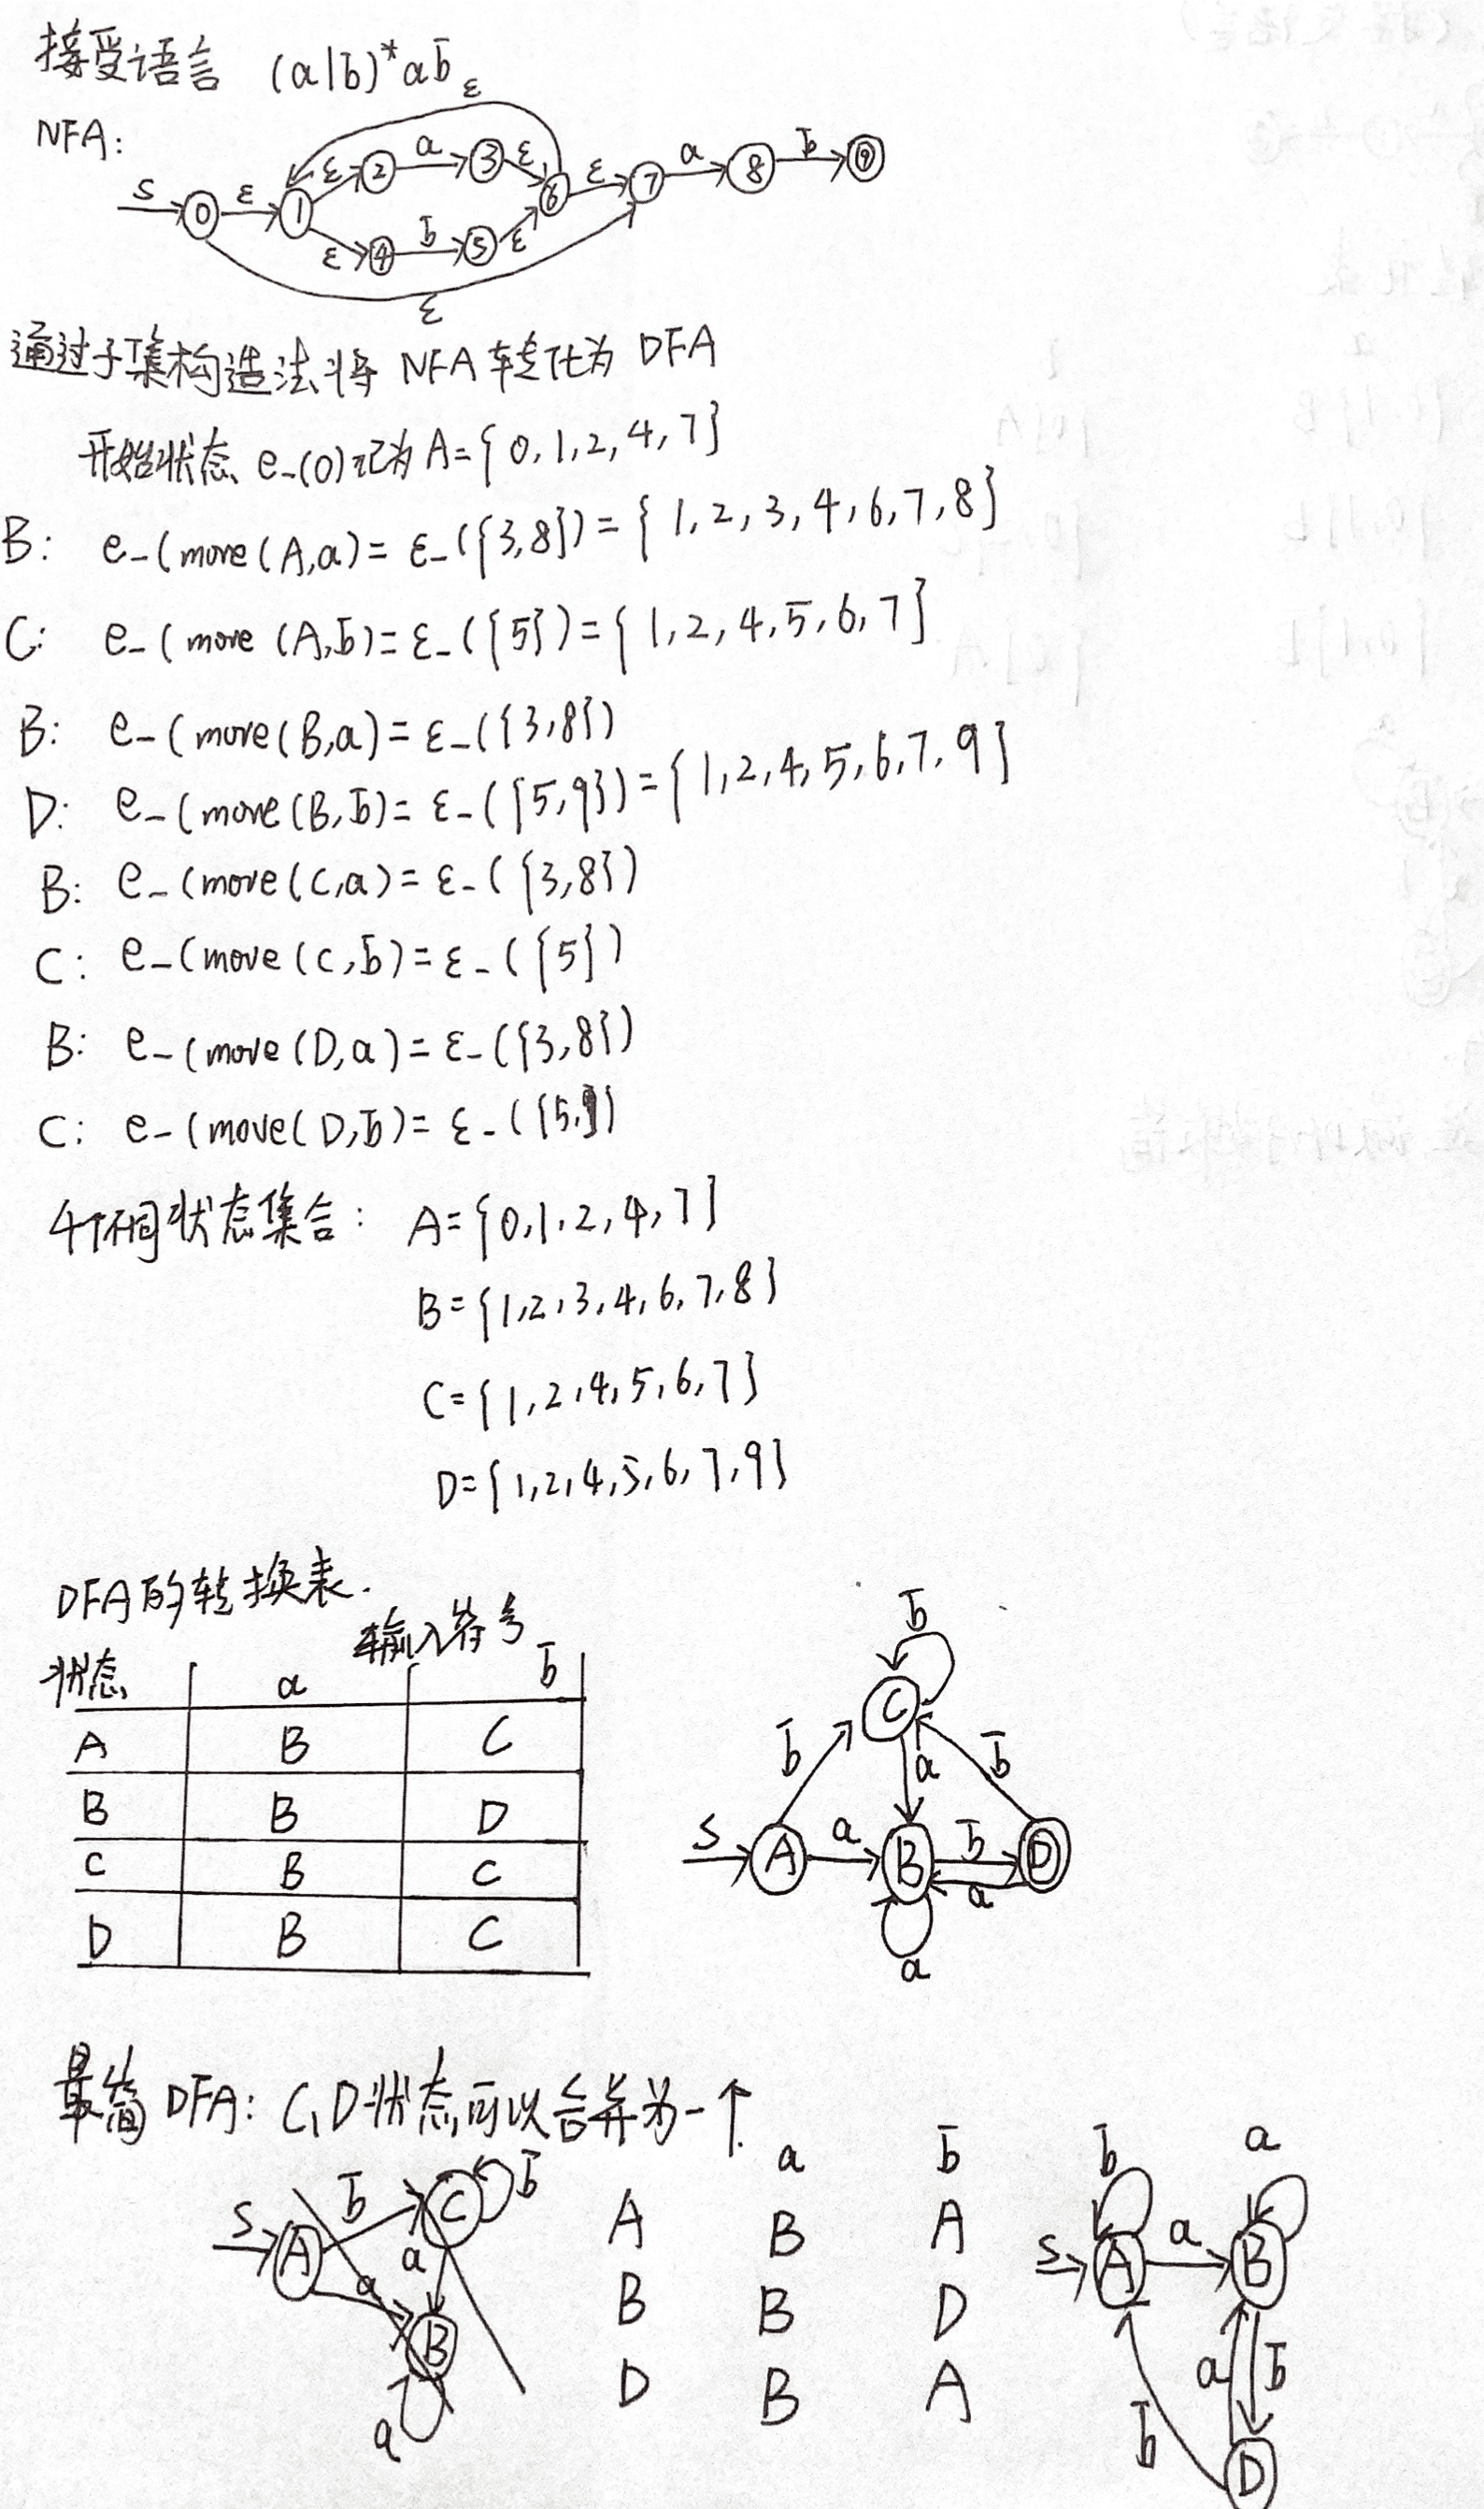 接受语言 (a|b)*ab
NFA:
S 0 ε 1 ε 2 a 3 ε 6 ε 7 a 8 b 9
ε 4 b 5 ε
ε
ε
通过子集构造法将 NFA 转化为 DFA
开始状态 e-(0)记为 A={0,1,2,4,7}
B: e-(move(A,a)=ε-({3,8})={1,2,3,4,6,7,8}
C: e-(move(A,b)=ε-({5})={1,2,4,5,6,7}
B: e-(move(B,a)=ε-({3,8})
D: e-(move(B,b)=ε-({5,9})={1,2,4,5,6,7,9}
B: e-(move(C,a)=ε-({3,8})
C: e-(move(C,b)=ε-({5})
B: e-(move(D,a)=ε-({3,8})
C: e-(move(D,b)=ε-({5})
4个不同状态集合: A={0,1,2,4,7}
B={1,2,3,4,6,7,8}
C={1,2,4,5,6,7}
D={1,2,4,5,6,7,9}
DFA的转换表.
输入符号
状态 a b
A B C
B B D
C B C
D B C
b
C
b a b
S A a B b D
a
a
最简 DFA: C,D状态可以合并为一个.
S A b C b
a a
B
a
a b
A B A
B B D
D B A
b a
S A a B
a b
b
D